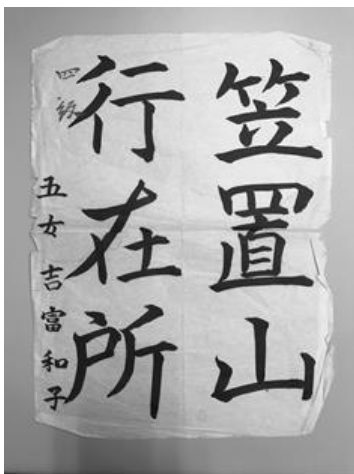 笠置山
行在所
四級
五女 吉富和子